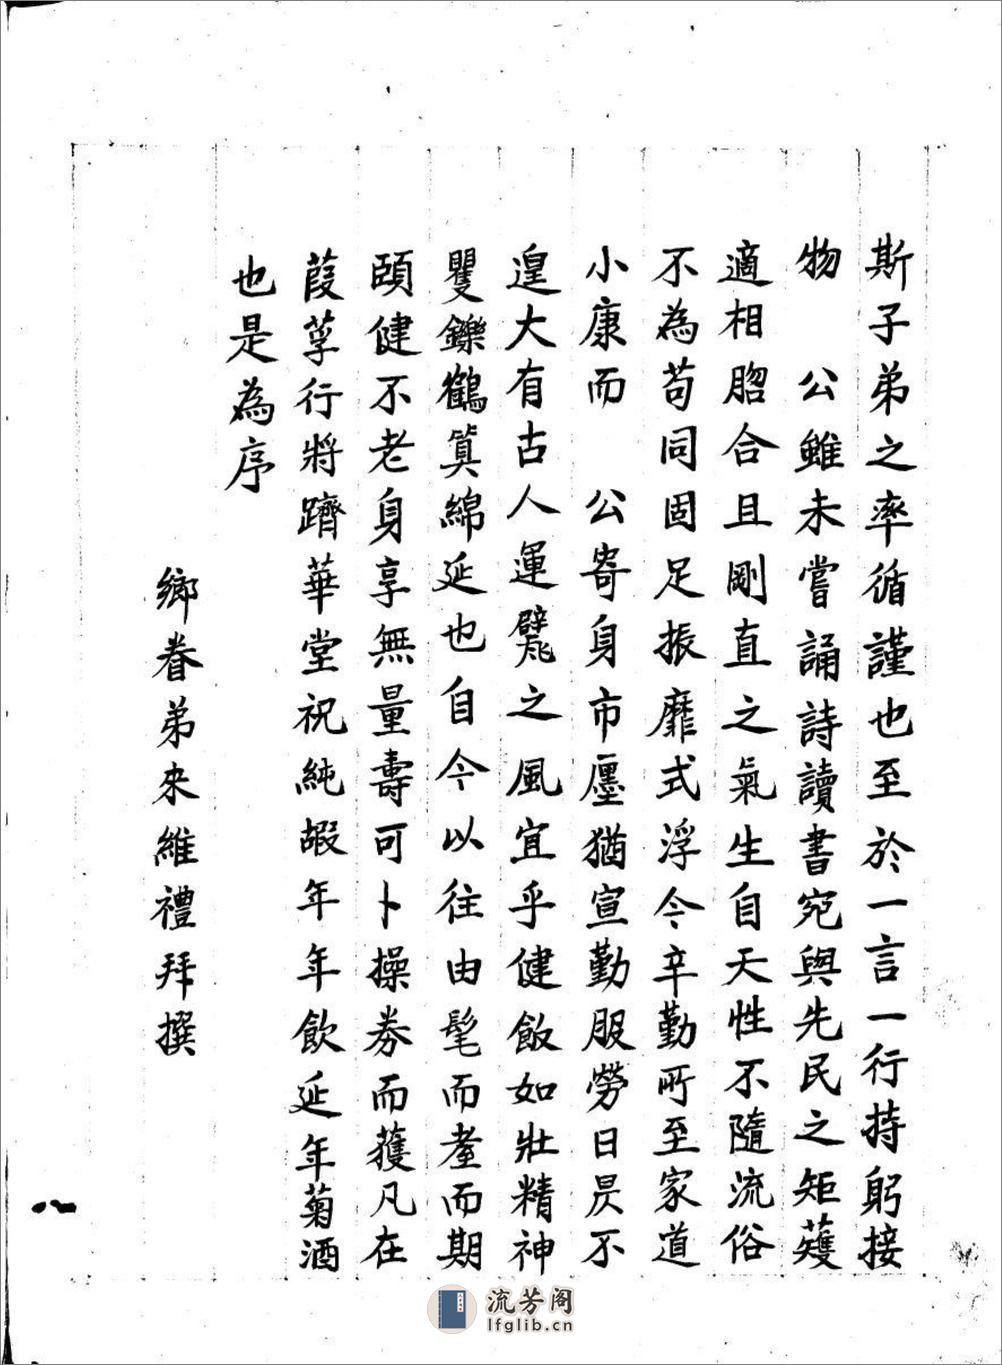 斯子弟之率循謹也至於一言一行持躬接
物　公雖未嘗誦詩讀書宛與先民之矩蒦
適相脗合且剛直之氣生自天性不隨流俗
不為苟同固足振靡式浮今辛勤所至家道
小康而　公寄身市廛猶宣勤服勞日昃不
遑大有古人運甓之風宜乎健飯如壯精神
矍鑠鶴筭綿延也自今以往由髦而耋而期
頤健不老身享無量壽可卜操券而蒦凡在
葭莩行將躋華堂祝純嘏年年飲延年菊酒
也是為序
鄉眷弟來維禮拜撰
流芳阁
lfglib.cn